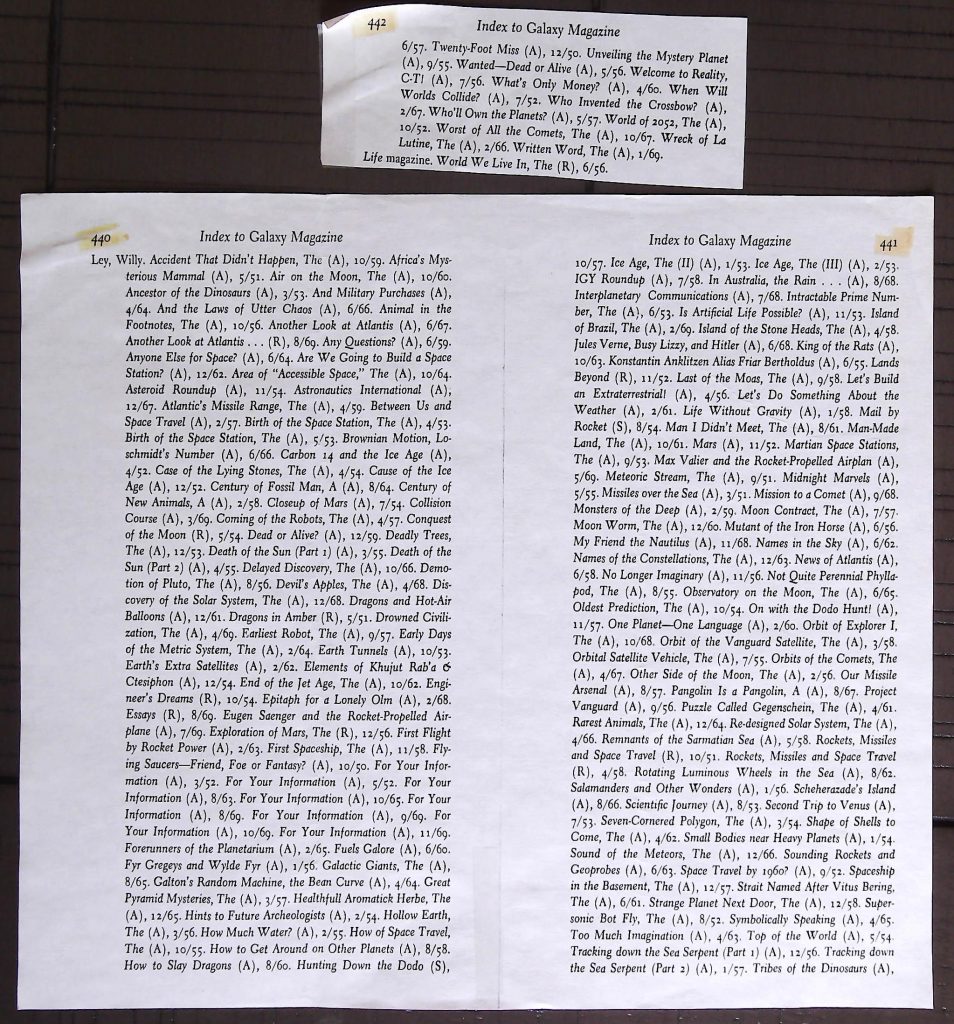 442
Index to Galaxy Magazine
6/57. Twenty-Foot Miss (A), 12/50. Unveiling the Mystery Planet
(A), 9/55. Wanted—Dead or Alive (A), 5/56. Welcome to Reality,
C-T! (A), 7/56. What's Only Money? (A), 4/60. When Will
Worlds Collide? (A), 7/52. Who Invented the Crossbow? (A),
2/67. Who'll Own the Planets? (A), 5/57. World of 2052, The (A),
10/52. Worst of All the Comets, The (A), 10/67. Wreck of La
Lutine, The (A), 2/66. Written Word, The (A), 1/69.
Life magazine. World We Live In, The (R), 6/56.
440
Index to Galaxy Magazine
Ley, Willy. Accident That Didn't Happen, The (A), 10/59. Africa's Mys-
terious Mammal (A), 5/51. Air on the Moon, The (A), 10/60.
Ancestor of the Dinosaurs (A), 3/53. And Military Purchases (A),
4/64. And the Laws of Utter Chaos (A), 6/66. Animal in the
Footnotes, The (A), 10/56. Another Look at Atlantis (A), 6/67.
Another Look at Atlantis . . . (R), 8/69. Any Questions? (A), 6/59.
Anyone Else for Space? (A), 6/64. Are We Going to Build a Space
Station? (A), 12/62. Area of "Accessible Space," The (A), 10/64.
Asteroid Roundup (A), 11/54. Astronautics International (A),
12/67. Atlantic's Missile Range, The (A), 4/59. Between Us and
Space Travel (A), 2/57. Birth of the Space Station, The (A), 4/53.
Birth of the Space Station, The (A), 5/53. Brownian Motion, Lo-
schmidt's Number (A), 6/66. Carbon 14 and the Ice Age (A),
4/52. Case of the Lying Stones, The (A), 4/54. Cause of the Ice
Age (A), 12/52. Century of Fossil Man, A (A), 8/64. Century of
New Animals, A (A), 2/58. Closeup of Mars (A), 7/54. Collision
Course (A), 3/69. Coming of the Robots, The (A), 4/57. Conquest
of the Moon (R), 5/54. Dead or Alive? (A), 12/59. Deadly Trees,
The (A), 12/53. Death of the Sun (Part 1) (A), 3/55. Death of the
Sun (Part 2) (A), 4/55. Delayed Discovery, The (A), 10/66. Demo-
tion of Pluto, The (A), 8/56. Devil's Apples, The (A), 4/68. Dis-
covery of the Solar System, The (A), 12/68. Dragons and Hot-Air
Balloons (A), 12/61. Dragons in Amber (R), 5/51. Drowned Civili-
zation, The (A), 4/69. Earliest Robot, The (A), 9/57. Early Days
of the Metric System, The (A), 2/64. Earth Tunnels (A), 10/53.
Earth's Extra Satellites (A), 2/62. Elements of Khujut Rab'a &
Ctesiphon (A), 12/54. End of the Jet Age, The (A), 10/62. Engi-
neer's Dreams (R), 10/54. Epitaph for a Lonely Olm (A), 2/68.
Essays (R), 8/69. Eugen Saenger and the Rocket-Propelled Air-
plane (A), 7/69. Exploration of Mars, The (R), 12/56. First Flight
by Rocket Power (A), 2/63. First Spaceship, The (A), 11/58. Fly-
ing Saucers—Friend, Foe or Fantasy? (A), 10/50. For Your Infor-
mation (A), 3/52. For Your Information (A), 5/52. For Your
Information (A), 8/63. For Your Information (A), 10/65. For Your
Information (A), 8/69. For Your Information (A), 9/69. For
Your Information (A), 10/69. For Your Information (A), 11/69.
Forerunners of the Planetarium (A), 2/65. Fuels Galore (A), 6/60.
Fyr Gregeys and Wylde Fyr (A), 1/56. Galactic Giants, The (A),
8/65. Galton's Random Machine, the Bean Curve (A), 4/64. Great
Pyramid Mysteries, The (A), 3/57. Healthfull Aromatick Herbe, The
(A), 12/65. Hints to Future Archeologists (A), 2/54. Hollow Earth,
The (A), 3/56. How Much Water? (A), 2/55. How of Space Travel,
The (A), 10/55. How to Get Around on Other Planets (A), 8/58.
How to Slay Dragons (A), 8/60. Hunting Down the Dodo (S),
Index to Galaxy Magazine
441
10/57. Ice Age, The (II) (A), 1/53. Ice Age, The (III) (A), 2/53.
IGY Roundup (A), 7/58. In Australia, the Rain . . . (A), 8/68.
Interplanetary Communications (A), 7/68. Intractable Prime Num-
ber, The (A), 6/53. Is Artificial Life Possible? (A), 11/53. Island
of Brazil, The (A), 2/69. Island of the Stone Heads, The (A), 4/58.
Jules Verne, Busy Lizzy, and Hitler (A), 6/68. King of the Rats (A),
10/63. Konstantin Anklitzen Alias Friar Bertholdus (A), 6/55. Lands
Beyond (R), 11/52. Last of the Moas, The (A), 9/58. Let's Build
an Extraterrestrial! (A), 4/56. Let's Do Something About the
Weather (A), 2/61. Life Without Gravity (A), 1/58. Mail by
Rocket (S), 8/54. Man I Didn't Meet, The (A), 8/61. Man-Made
Land, The (A), 10/61. Mars (A), 11/52. Martian Space Stations,
The (A), 9/53. Max Valier and the Rocket-Propelled Airplan (A),
5/69. Meteoric Stream, The (A), 9/51. Midnight Marvels (A),
5/55. Missiles over the Sea (A), 3/51. Mission to a Comet (A), 9/68.
Monsters of the Deep (A), 2/59. Moon Contract, The (A), 7/57.
Moon Worm, The (A), 12/60. Mutant of the Iron Horse (A), 6/56.
My Friend the Nautilus (A), 11/68. Names in the Sky (A), 6/62.
Names of the Constellations, The (A), 12/63. News of Atlantis (A),
6/58. No Longer Imaginary (A), 11/56. Not Quite Perennial Phylla-
pod, The (A), 8/55. Observatory on the Moon, The (A), 6/65.
Oldest Prediction, The (A), 10/54. On with the Dodo Hunt! (A),
11/57. One Planet—One Language (A), 2/60. Orbit of Explorer I,
The (A), 10/68. Orbit of the Vanguard Satellite, The (A), 3/58.
Orbital Satellite Vehicle, The (A), 7/55. Orbits of the Comets, The
(A), 4/67. Other Side of the Moon, The (A), 2/56. Our Missile
Arsenal (A), 8/57. Pangolin Is a Pangolin, A (A), 8/67. Project
Vanguard (A), 9/56. Puzzle Called Gegenschein, The (A), 4/61.
Rarest Animals, The (A), 12/64. Re-designed Solar System, The (A),
4/66. Remnants of the Sarmatian Sea (A), 5/58. Rockets, Missiles
and Space Travel (R), 10/51. Rockets, Missiles and Space Travel
(R), 4/58. Rotating Luminous Wheels in the Sea (A), 8/62.
Salamanders and Other Wonders (A), 1/56. Scheherazade's Island
(A), 8/66. Scientific Journey (A), 8/53. Second Trip to Venus (A),
7/53. Seven-Cornered Polygon, The (A), 3/54. Shape of Shells to
Come, The (A), 4/62. Small Bodies near Heavy Planets (A), 1/54.
Sound of the Meteors, The (A), 12/66. Sounding Rockets and
Geoprobes (A), 6/63. Space Travel by 1960? (A), 9/52. Spaceship
in the Basement, The (A), 12/57. Strait Named After Vitus Bering,
The (A), 6/61. Strange Planet Next Door, The (A), 12/58. Super-
sonic Bot Fly, The (A), 8/52. Symbolically Speaking (A), 4/65.
Too Much Imagination (A), 4/63. Top of the World (A), 5/54.
Tracking down the Sea Serpent (Part 1) (A), 12/56. Tracking down
the Sea Serpent (Part 2) (A), 1/57. Tribes of the Dinosaurs (A),